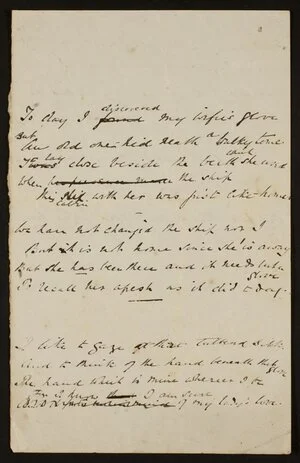 2
To day I found discovered my wife's glove
But an old one hid neath a bulky tome
It was lay close beside the berth she used
When the ship
The ship with her was just like home
We have not changed the ship nor I
But it is not home since she is away
But she has been there and it needs but a glove
To recall her afresh as it did to day.
I like to gaze at that
And to think of the hand beneath that glove
The hand which is mine wherever I be
I know I am sure of my lady's love.